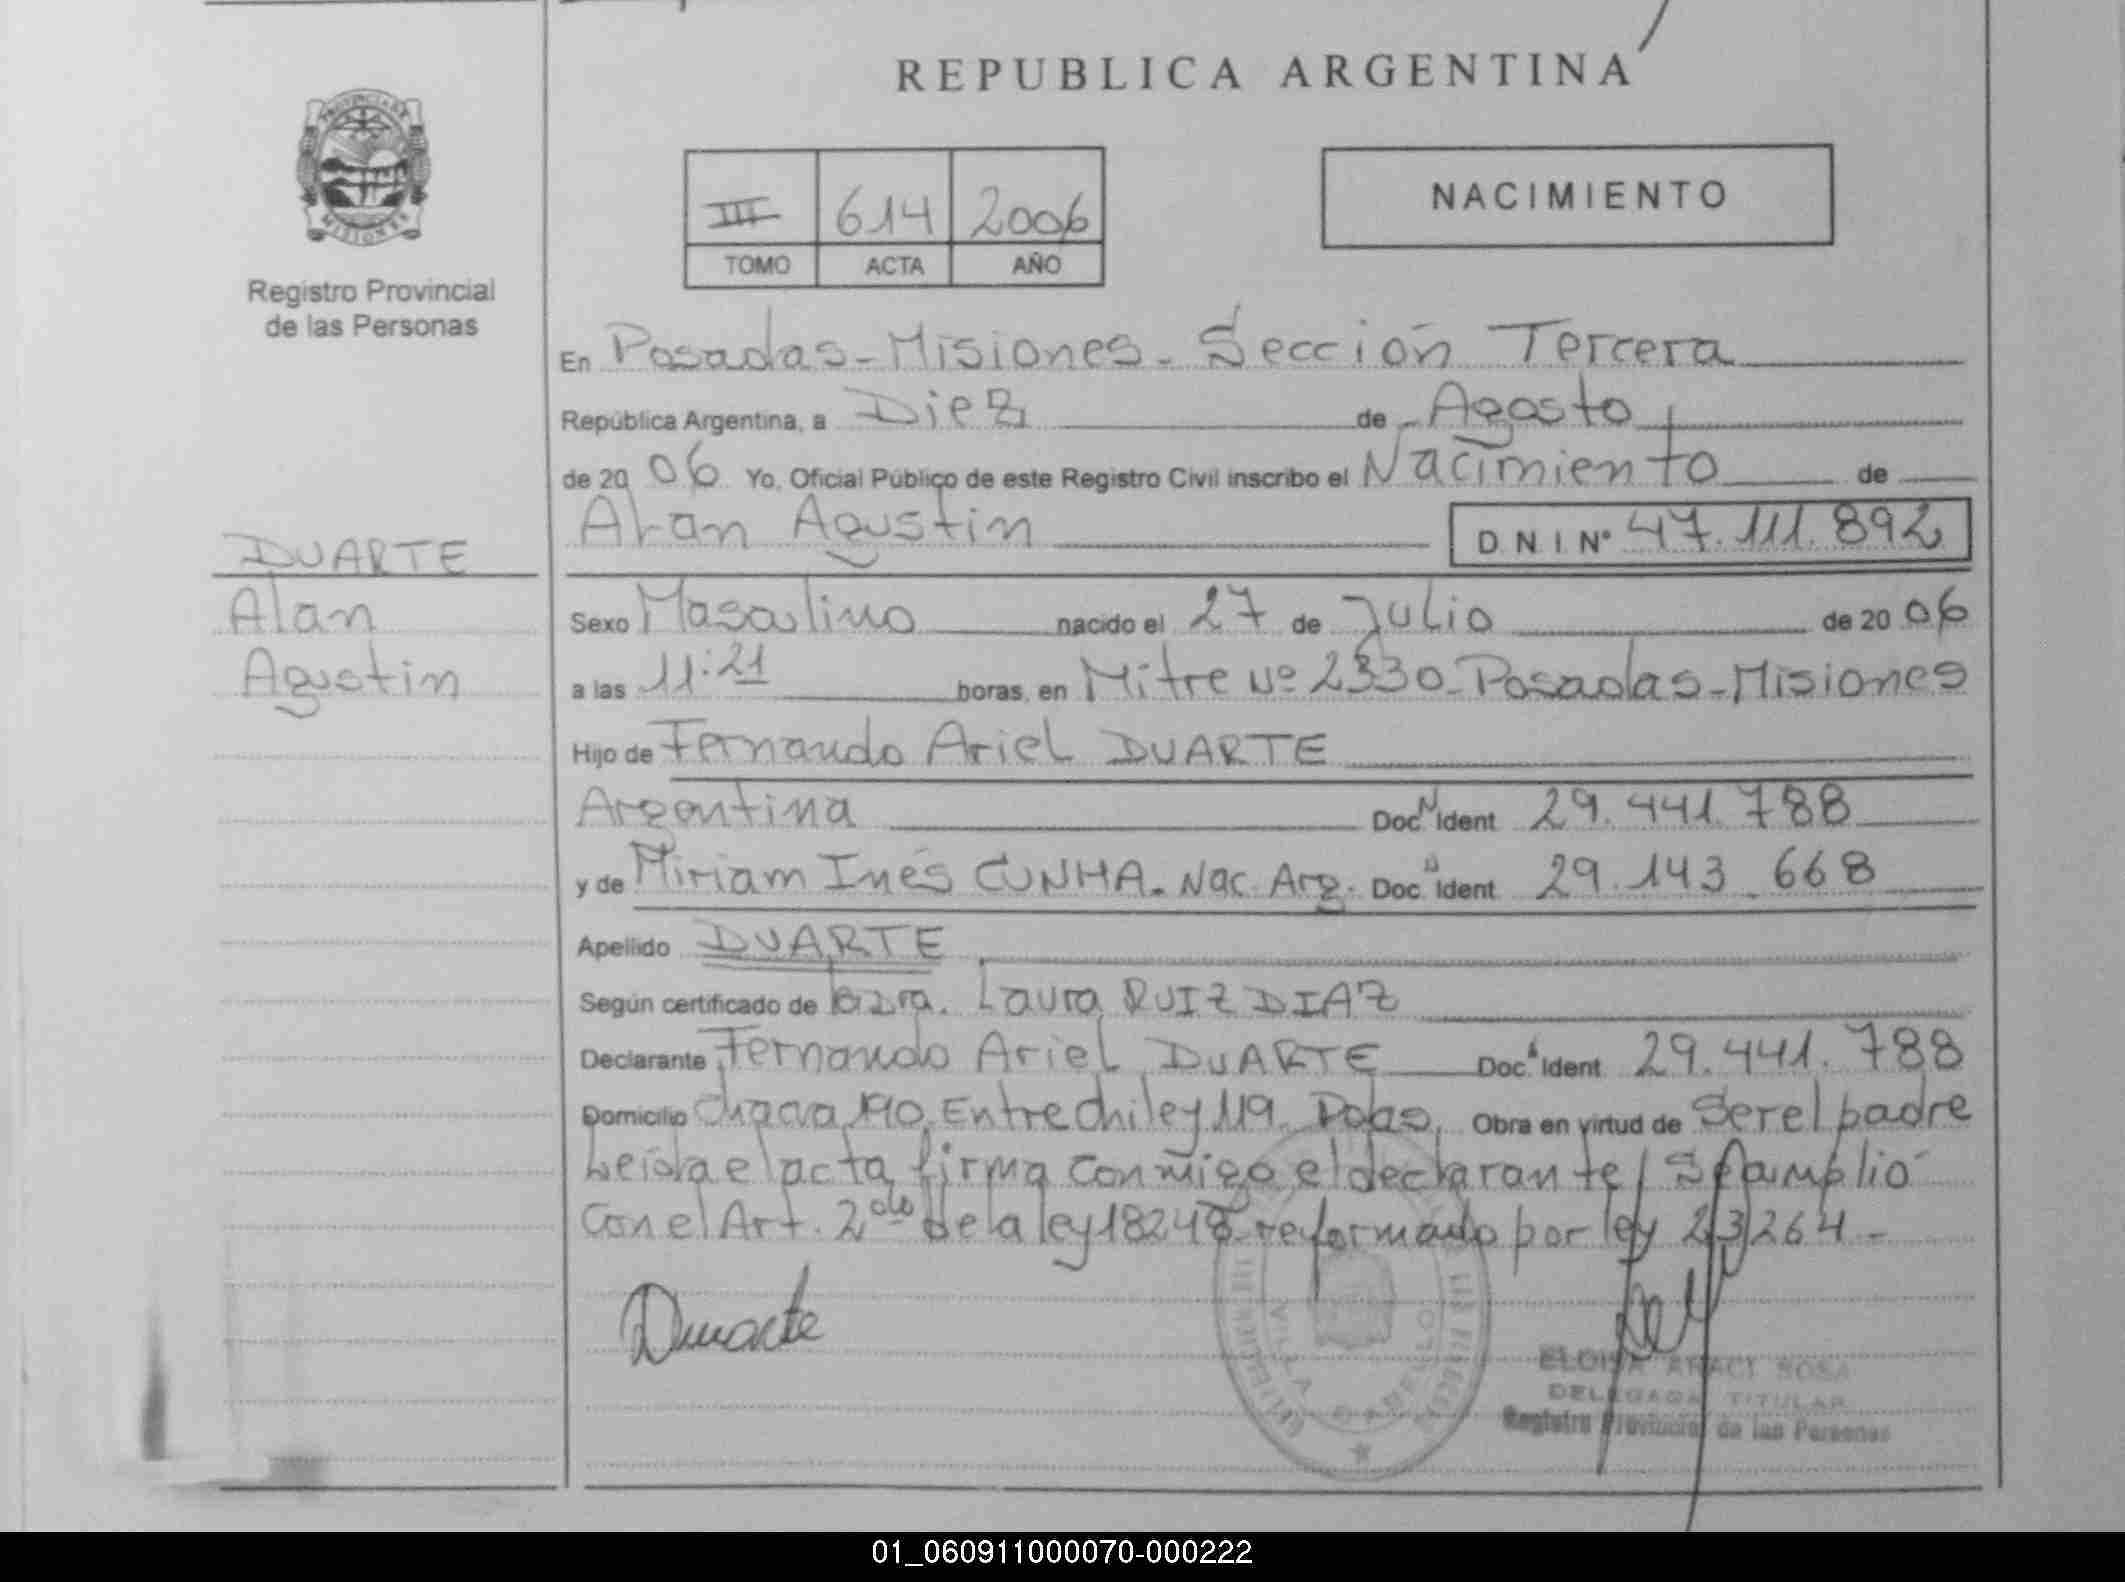 REPUBLICA ARGENTINA
PROVINCIA DE
MISIONES
Registro Provincial
de las Personas
III 614 2006
TOMO ACTA AÑO
NACIMIENTO
En Posadas - Misiones - Sección Tercera
República Argentina, a Diez de Agosto
de 20 06 Yo, Oficial Público de este Registro Civil inscribo el Nacimiento de
Alan Agustin D N I Nº 47.111.892
DUARTE
Alan
Agustin
Sexo Masculino nacido el 27 de Julio de 20 06
a las 11:21 horas, en Mitre Nº 2330 - Posadas - Misiones
Hijo de Fernando Ariel DUARTE
Argentina Doc. Ident 29.441.788
y de Miriam Inés CUNHA. Nac. Arg. Doc. Ident 29.143.668
Apellido DUARTE
Según certificado de Laura RUIZ DIAZ
Declarante Fernando Ariel DUARTE Doc. Ident 29.441.788
Domicilio Entre chile y 119. Pdas. Obra en virtud de Ser el padre
Leida el acta firma conmigo el declarante / Se amplió
Con el Art. 2do de la ley 18248 reformado por ley 23264 -
Duarte
VILLA CABELLO
ELOISA ARACI SOSA
DELEGADA TITULAR
Registro Provincial de las Personas
01_060911000070-000222